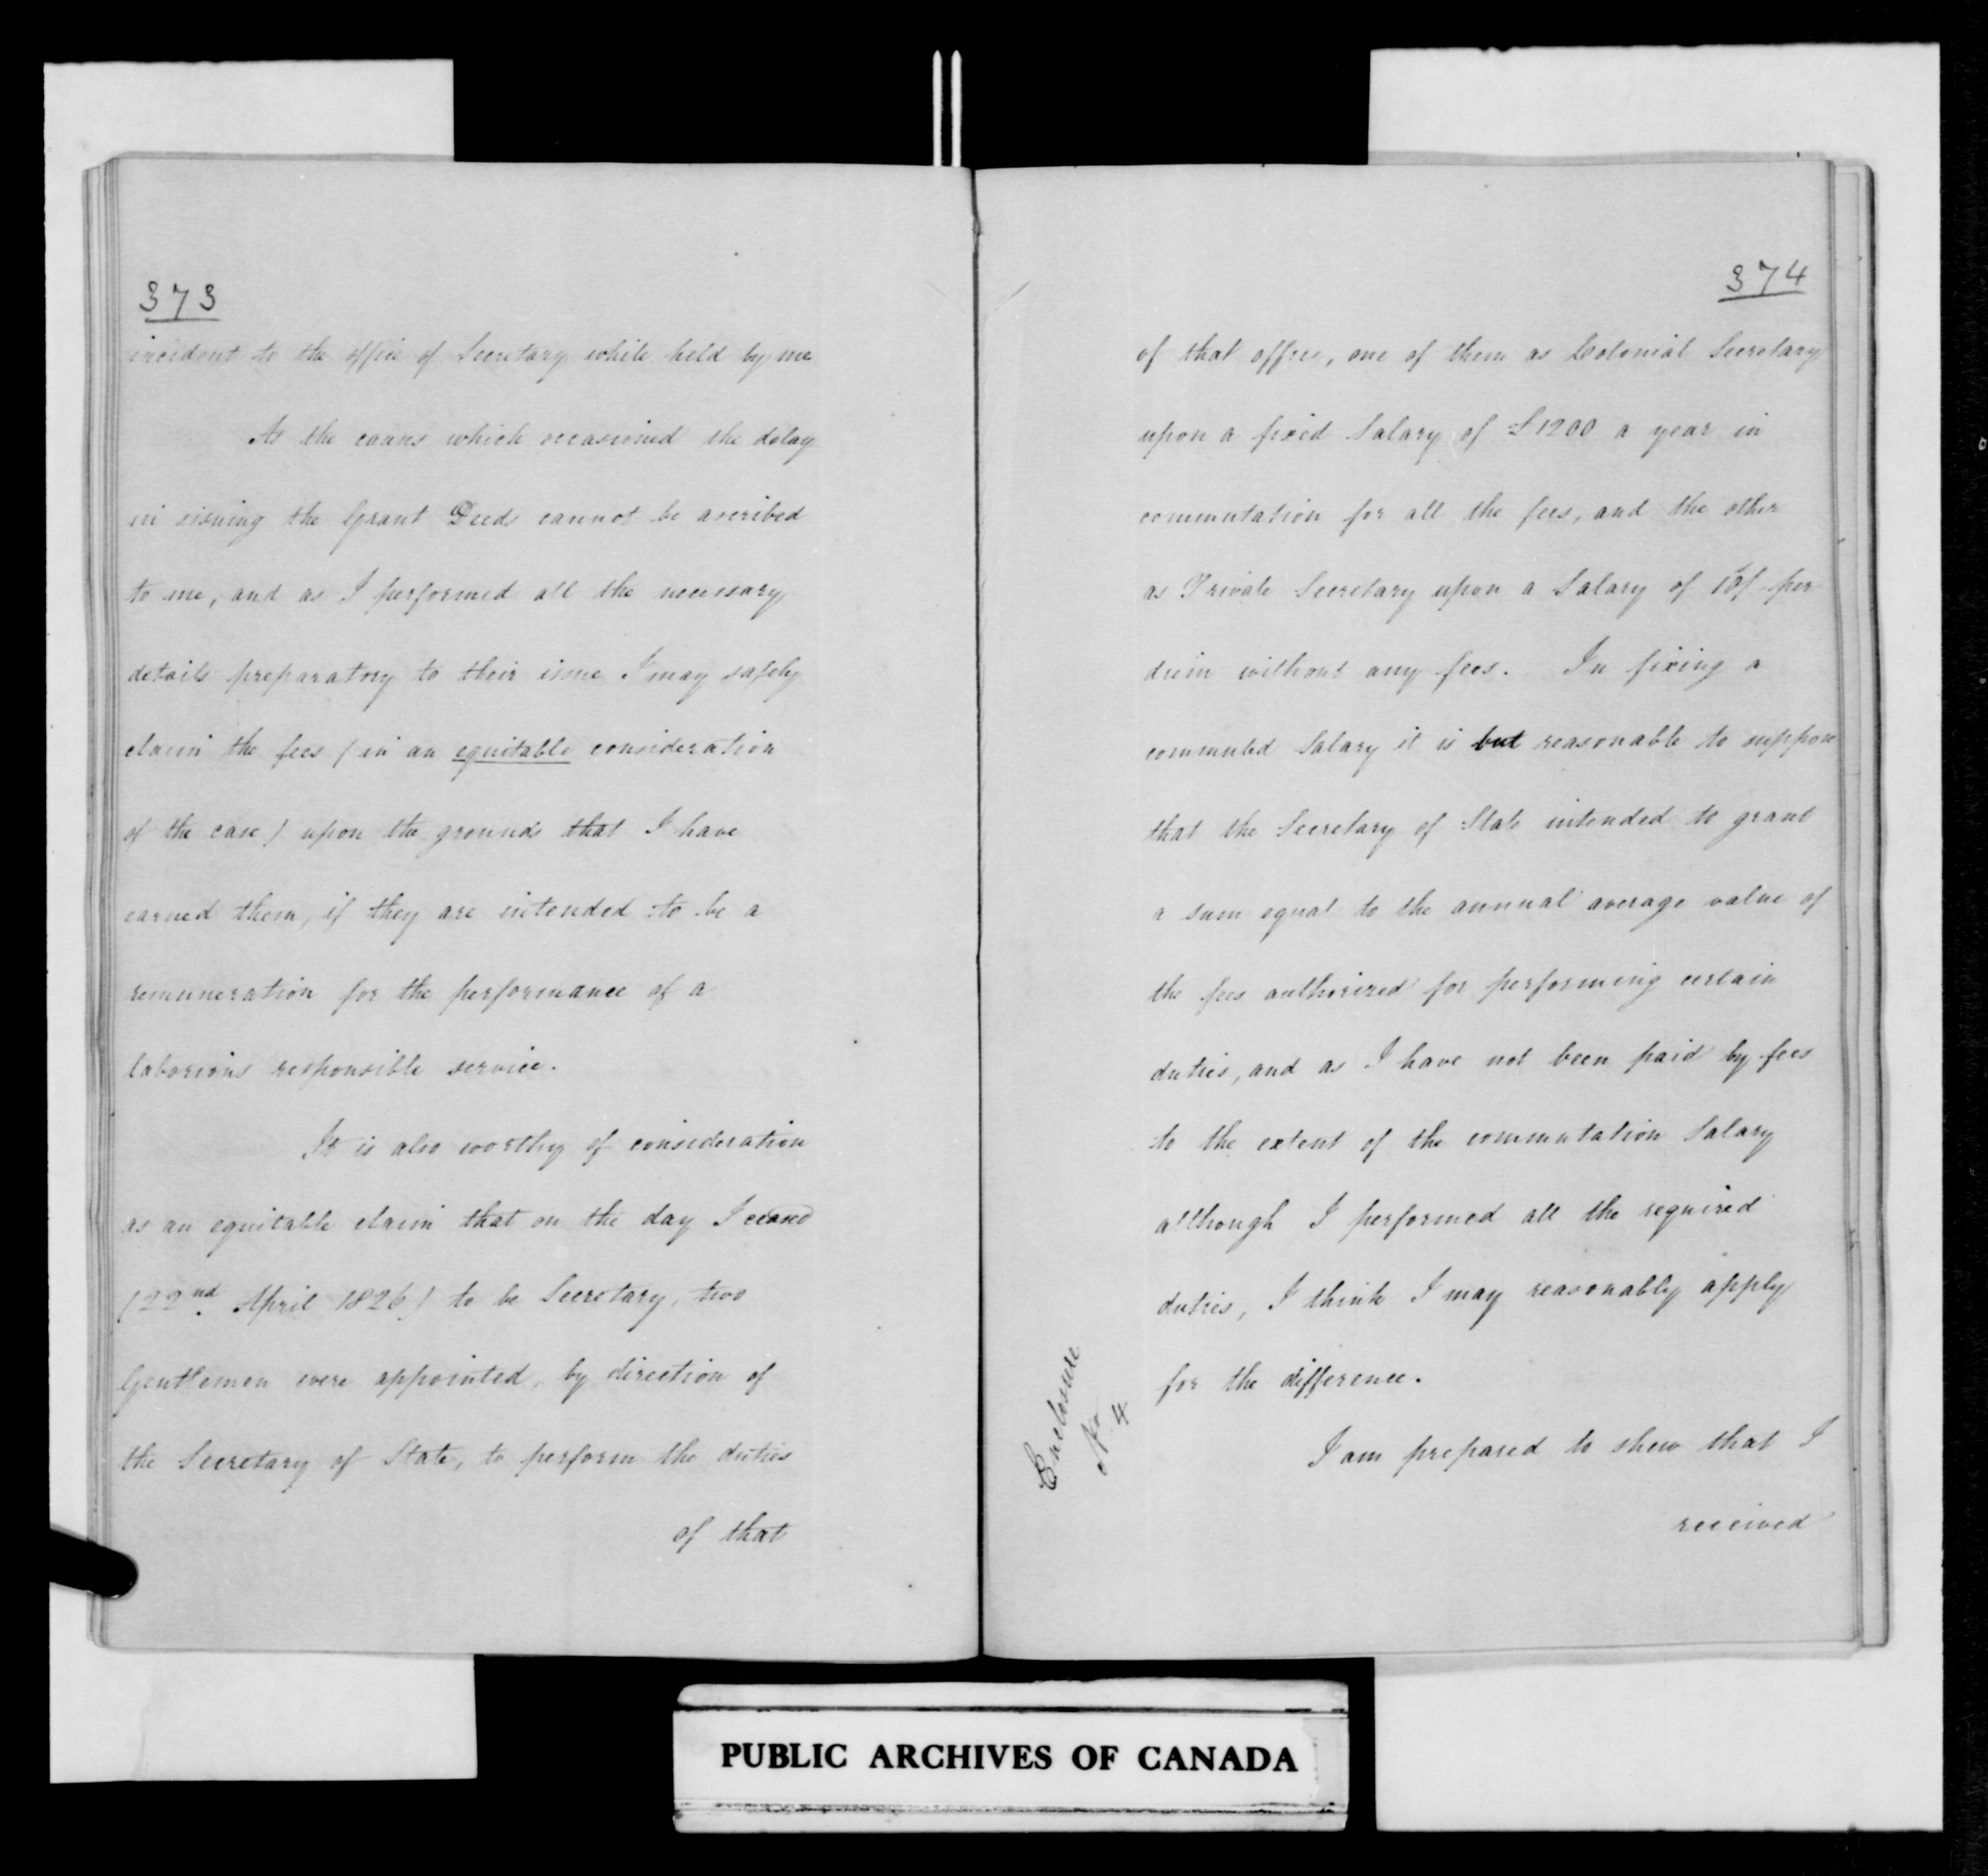 373
incident to the office of Secretary while held by me
As the causes which occasioned the delay
in issuing the Grant Deeds cannot be ascribed
to me, and as I performed all the necessary
details preparatory to their issue I may safely
claim the fees (in an equitable consideration
of the case) upon the grounds that I have
earned them, if they are intended to be a
remuneration for the performance of a
laborious responsible service.
It is also worthy of consideration
as an equitable claim that on the day I ceased
(22nd. April 1826) to be Secretary, two
Gentlemen were appointed, by direction of
the Secretary of State, to perform the duties
of that
374
of that office, one of them as Colonial Secretary
upon a fixed Salary of £1200 a year in
commutation for all the fees, and the other
as Private Secretary upon a Salary of per
diem without any fees. In fixing a
commuted Salary it is but reasonable to suppose
that the Secretary of State intended to grant
a sum equal to the annual average value of
the fees authorized for performing certain
duties, and as I have not been paid by fees
to the extent of the commutation Salary
although I performed all the required
duties, I think I may reasonably apply
for the difference.
I am prepared to shew that I
received
Enclosure
No 4
PUBLIC ARCHIVES OF CANADA